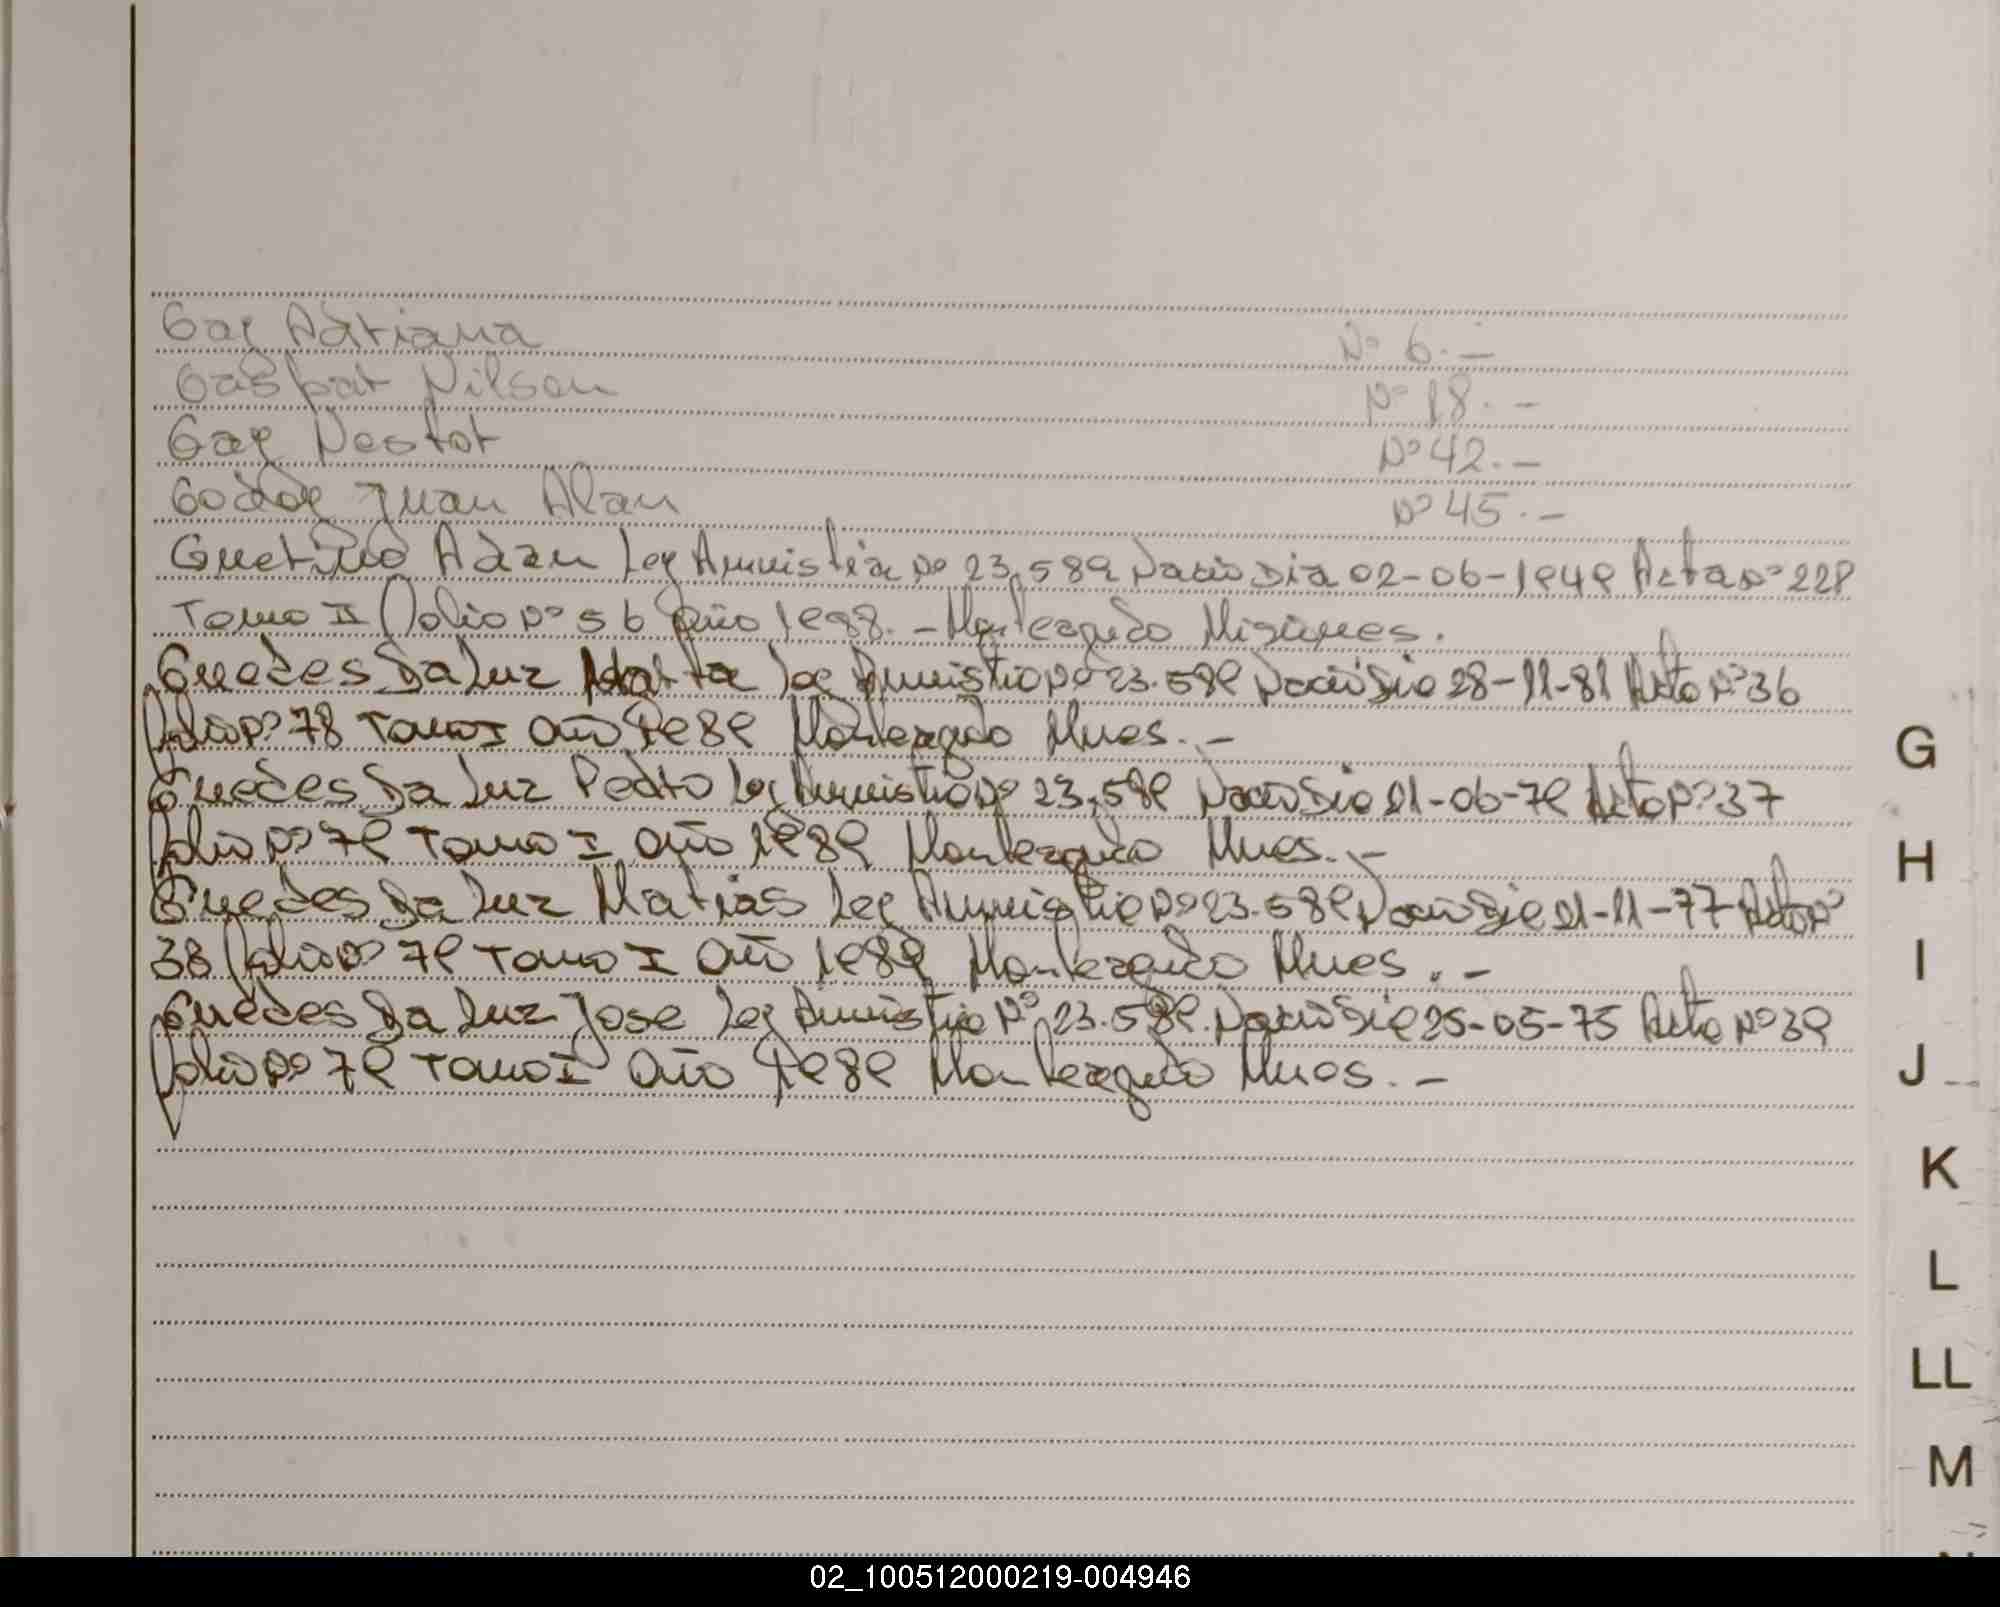 Gay Adriana Nº 6.-
Gaspar Nilson Nº 18.-
Gay Nestor Nº 42.-
Godoy Juan Alan Nº 45.-
Guerino Adan Ley Amnistia Nº 23.589 Nacio Dia 02-06-1949 Acta Nº 228
Tomo II Folio Nº 56 Año 1988.- Montezguido Misiones.
Guedes Da Luz Marta Ley Amnistia Nº 23.589 Nacio Dia 28-11-81 Acta Nº 36
Folio Nº 78 Tomo I Año 1989 Mnes.-
Guedes Da Luz Pedro Ley Amnistia Nº 23.589 Nacio Dia 21-06-79 Acta Nº 37
Folio Nº 79 Tomo I Año 1989 Mnes.-
Guedes Da Luz Matias Ley Amnistia Nº 23.589 Nacio Dia 21-11-77 Acta Nº
38 Folio Nº 79 Tomo I Año 1989 Mnes.-
Guedes Da Luz Jose Ley Amnistia Nº 23.589. Nacio Dia 25-05-75 Acta Nº 39
Folio Nº 79 Tomo I Año 1989 Mnes.-
G
H
I
J
K
L
LL
M
02_100512000219-004946